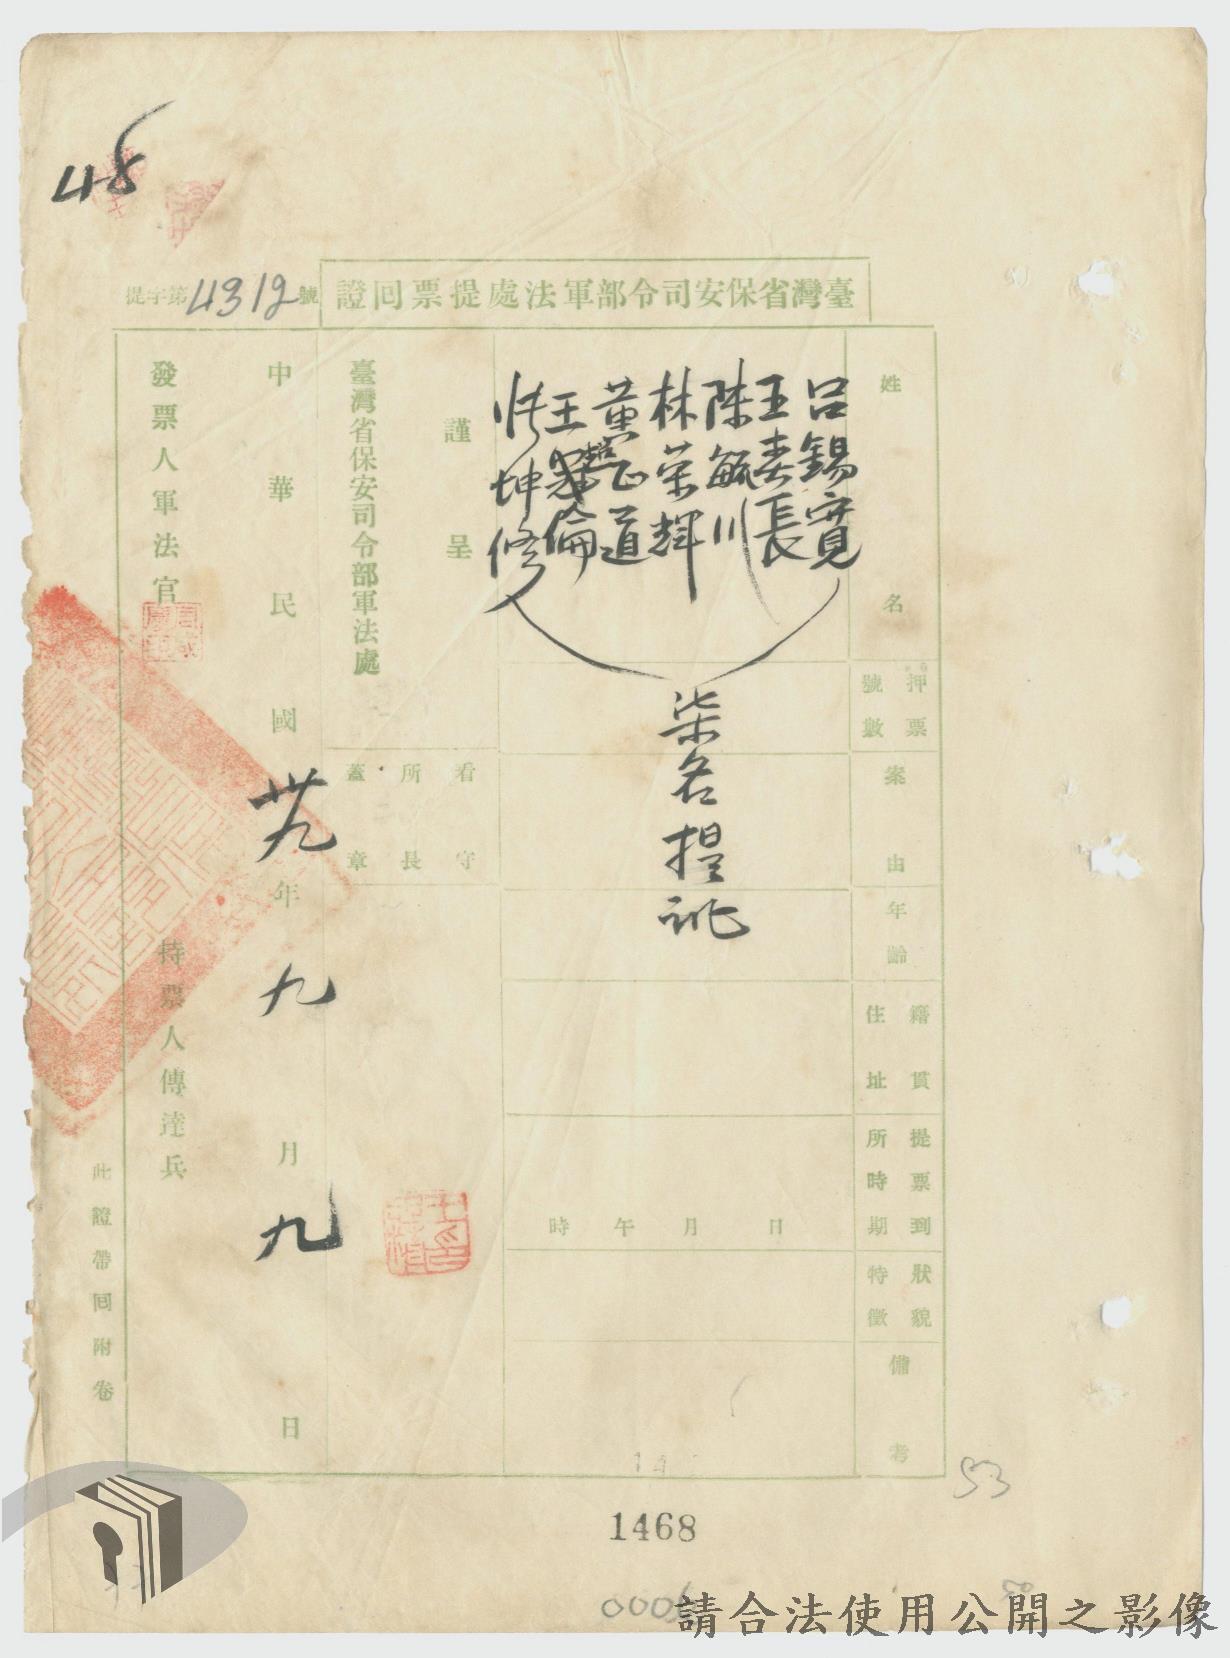 48
臺灣省保安司令部軍法處提票回證
提字第4312號
姓名
押票號數
案由
年齡
籍貫住址
提票到所時期
狀貌特徵
備考
呂錫寬
王春長
陳毓川
林榮輝
黃營道
倫
坤修
柒名提訊
日月午時
謹呈
臺灣省保安司令部軍法處
看守所長蓋章
中華民國卅九年九月九日
發票人軍法官
持票人傳達兵
此證帶回附卷
53
1468
請合法使用公開之影像